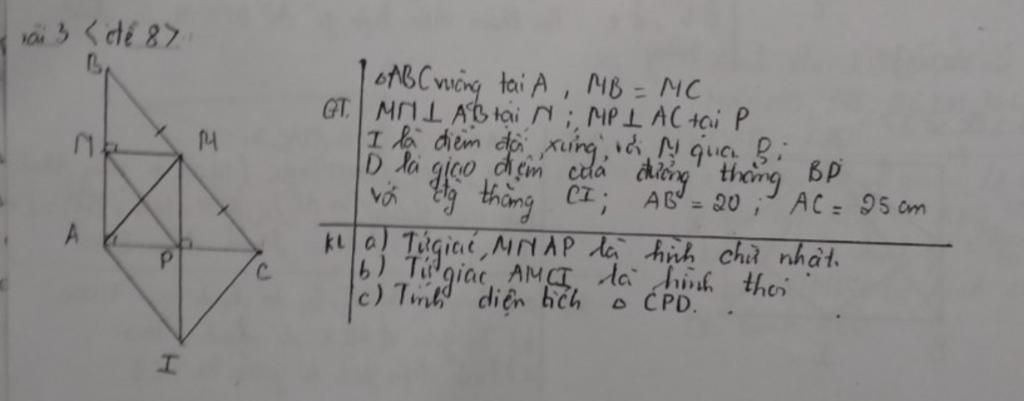 Bài 3 <đề 8>
B
N
M
A
P
C
I
GT. △ABC vuông tại A, MB = MC
MN ⊥ AB tại N; MP ⊥ AC tại P
I là điểm đối xứng với M qua P;
D là giao điểm của đường thẳng BP
với đg thẳng CI; AB = 20; AC = 25 cm
KL a) Tứ giác MNAP là hình chữ nhật.
b) Tứ giác AMCI là hình thoi
c) Tính diện tích △ CPD.